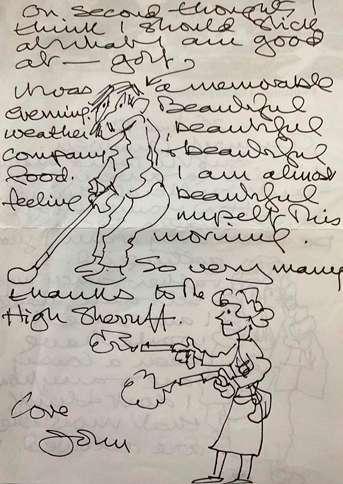 On second thoughts, I
think I should stick
at what I am good
at — golf.
It was a memorable
evening. Beautiful
weather beautiful
company & beautiful
food. I am almost
feeling beautiful
myself this
morning.
So very many
thanks to the
High Sherriff.
Love
John